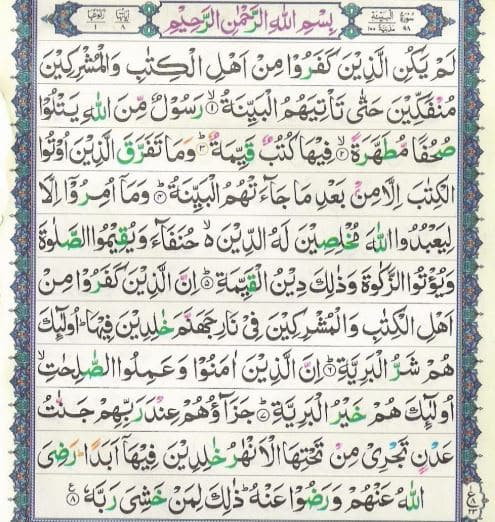 سورة البينة ٩٨ مدنية ١٠٠ بِسْمِ اللهِ الرَّحْمٰنِ الرَّحِيْمِ اٰيَاتُهَا ٨ رُكُوْعُهَا ١
لَمْ يَكُنِ الَّذِيْنَ كَفَرُوْا مِنْ اَهْلِ الْكِتٰبِ وَالْمُشْرِكِيْنَ
مُنْفَكِّيْنَ حَتّٰى تَاْتِيَهُمُ الْبَيِّنَةُ ۙ‏﴿۱﴾ رَسُوْلٌ مِّنَ اللهِ يَتْلُوْا
صُحُفًا مُّطَهَّرَةً ۙ‏﴿۲﴾ فِيْهَا كُتُبٌ قَيِّمَةٌ ؕ‏﴿۳﴾ وَمَا تَفَرَّقَ الَّذِيْنَ اُوْتُوا
الْكِتٰبَ اِلَّا مِنْۢ بَعْدِ مَا جَآءَتْهُمُ الْبَيِّنَةُ ؕ‏﴿۴﴾ وَمَاۤ اُمِرُوْۤا اِلَّا
لِيَعْبُدُوا اللهَ مُخْلِصِيْنَ لَهُ الدِّيْنَ ۙ۬ حُنَفَآءَ وَيُقِيْمُوا الصَّلٰوةَ
وَيُؤْتُوا الزَّكٰوةَ وَذٰلِكَ دِيْنُ الْقَيِّمَةِ ؕ‏﴿۵﴾ اِنَّ الَّذِيْنَ كَفَرُوْا مِنْ
اَهْلِ الْكِتٰبِ وَالْمُشْرِكِيْنَ فِيْ نَارِ جَهَنَّمَ خٰلِدِيْنَ فِيْهَا ؕ اُولٰٓئِكَ
هُمْ شَرُّ الْبَرِيَّةِ ؕ‏﴿۶﴾ اِنَّ الَّذِيْنَ اٰمَنُوْا وَعَمِلُوا الصّٰلِحٰتِ ۙ
اُولٰٓئِكَ هُمْ خَيْرُ الْبَرِيَّةِ ؕ‏﴿۷﴾ جَزَآؤُهُمْ عِنْدَ رَبِّهِمْ جَنّٰتُ
عَدْنٍ تَجْرِيْ مِنْ تَحْتِهَا الْاَنْهٰرُ خٰلِدِيْنَ فِيْهَاۤ اَبَدًا ؕ رَضِيَ
اللهُ عَنْهُمْ وَرَضُوْا عَنْهُ ؕ ذٰلِكَ لِمَنْ خَشِيَ رَبَّهٗ ‏﴿۸﴾ ع